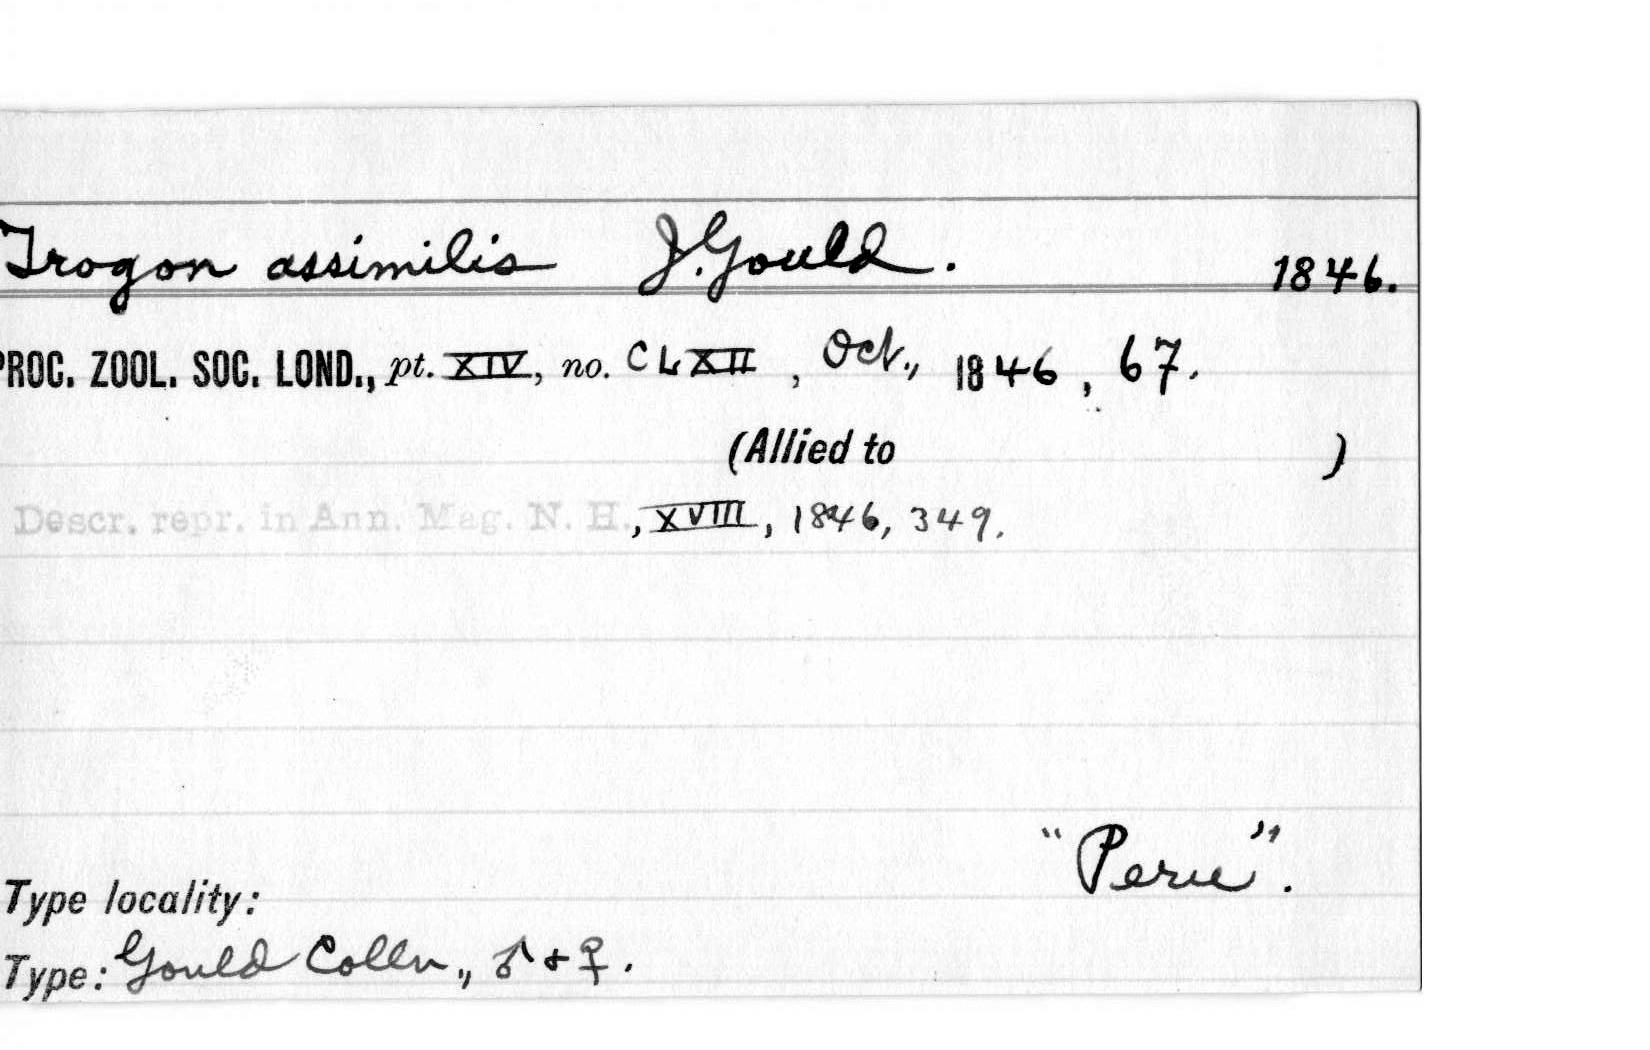 Trogon assimilis J. Gould. 1846.
PROC. ZOOL. SOC. LOND., pt. XIV, no. CLXII, Oct., 1846, 67.
(Allied to )
Descr. repr. in Ann. Mag. N. H., XVIII, 1846, 349.
"Peru".
Type locality:
Type: Gould Colln., ♂ + ♀.